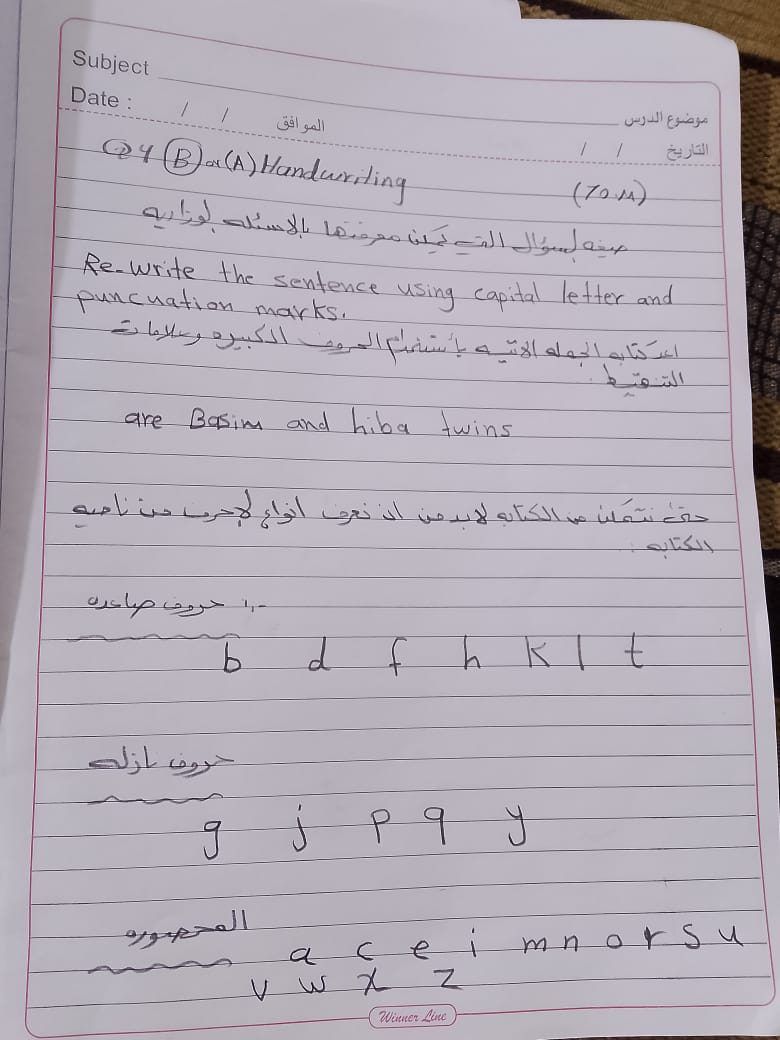 Subject
Date : / / الموافق
موضوع الدرس
/ / التاريخ
Q4 (B) or (A) Handwriting (10 M)
صيغه لسؤال التي يمكن معرفتها بالاسئله لوزاريه
Re-write the sentence using capital letter and
puncuation marks.
اعد كتابه الجمله الاتيه بأستخدام الحروف الكبيره وعلامات
التنقيط .
are Basim and hiba twins
حتى نتمكن من الكتابه لابد من ان نعرف انواع لاحرف من ناحيه
الكتابه :
١- حروف صاعده
b d f h k l t
حروف نازله
g j p q y
المحصوره
a c e i m n o r s u
v w x z
Winner Line